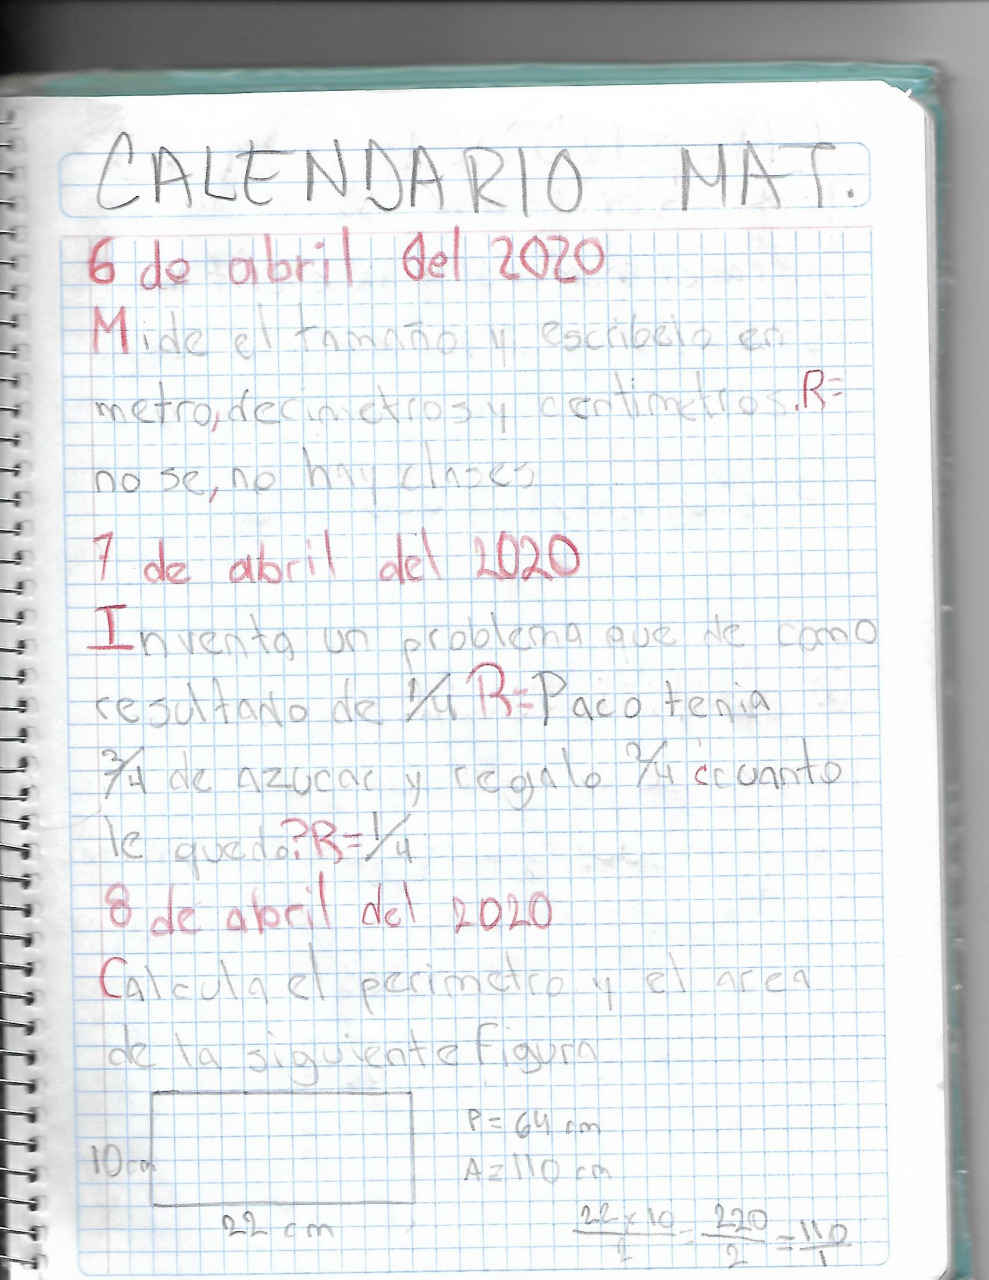 CALENDARIO MAT.
6 de abril del 2020
Mide el tamaño y escribelo en
metro, decimetros y centimetros. R=
no se, no hay clases
7 de abril del 2020
Inventa un problema que de como
resultado de 1/4 R= Paco tenia
3/4 de azucar y regalo 2/4 ¿cuanto
le quedo? R= 1/4
8 de abril del 2020
Calcula el perimetro y el area
de la siguiente figura
P= 64 cm
10 cm
A= 110 cm
22 cm
22 x 10 / 2 = 220 / 2 = 110 / 1